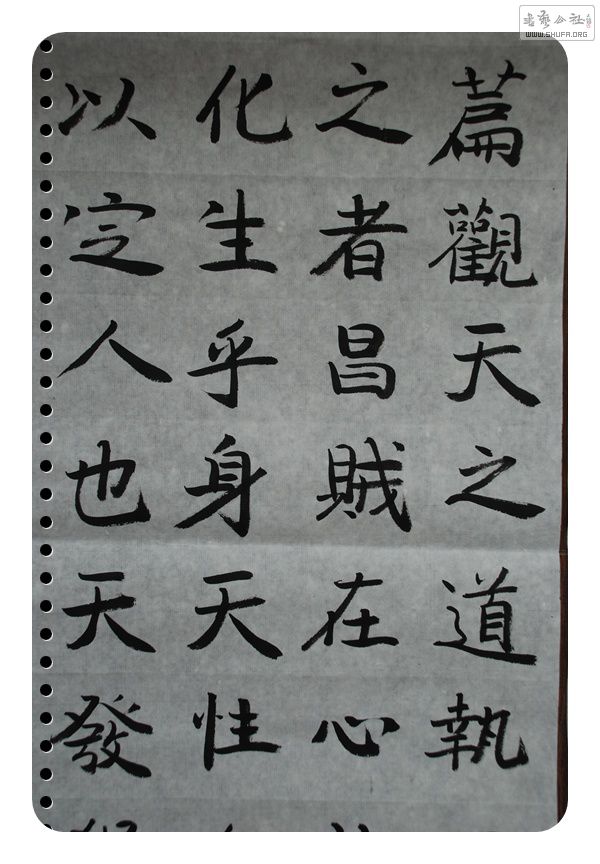 篇觀天之道執
之者昌賊在心
化生乎身天性
以定人也天發
書藝公社
WWW.SHUFA.ORG